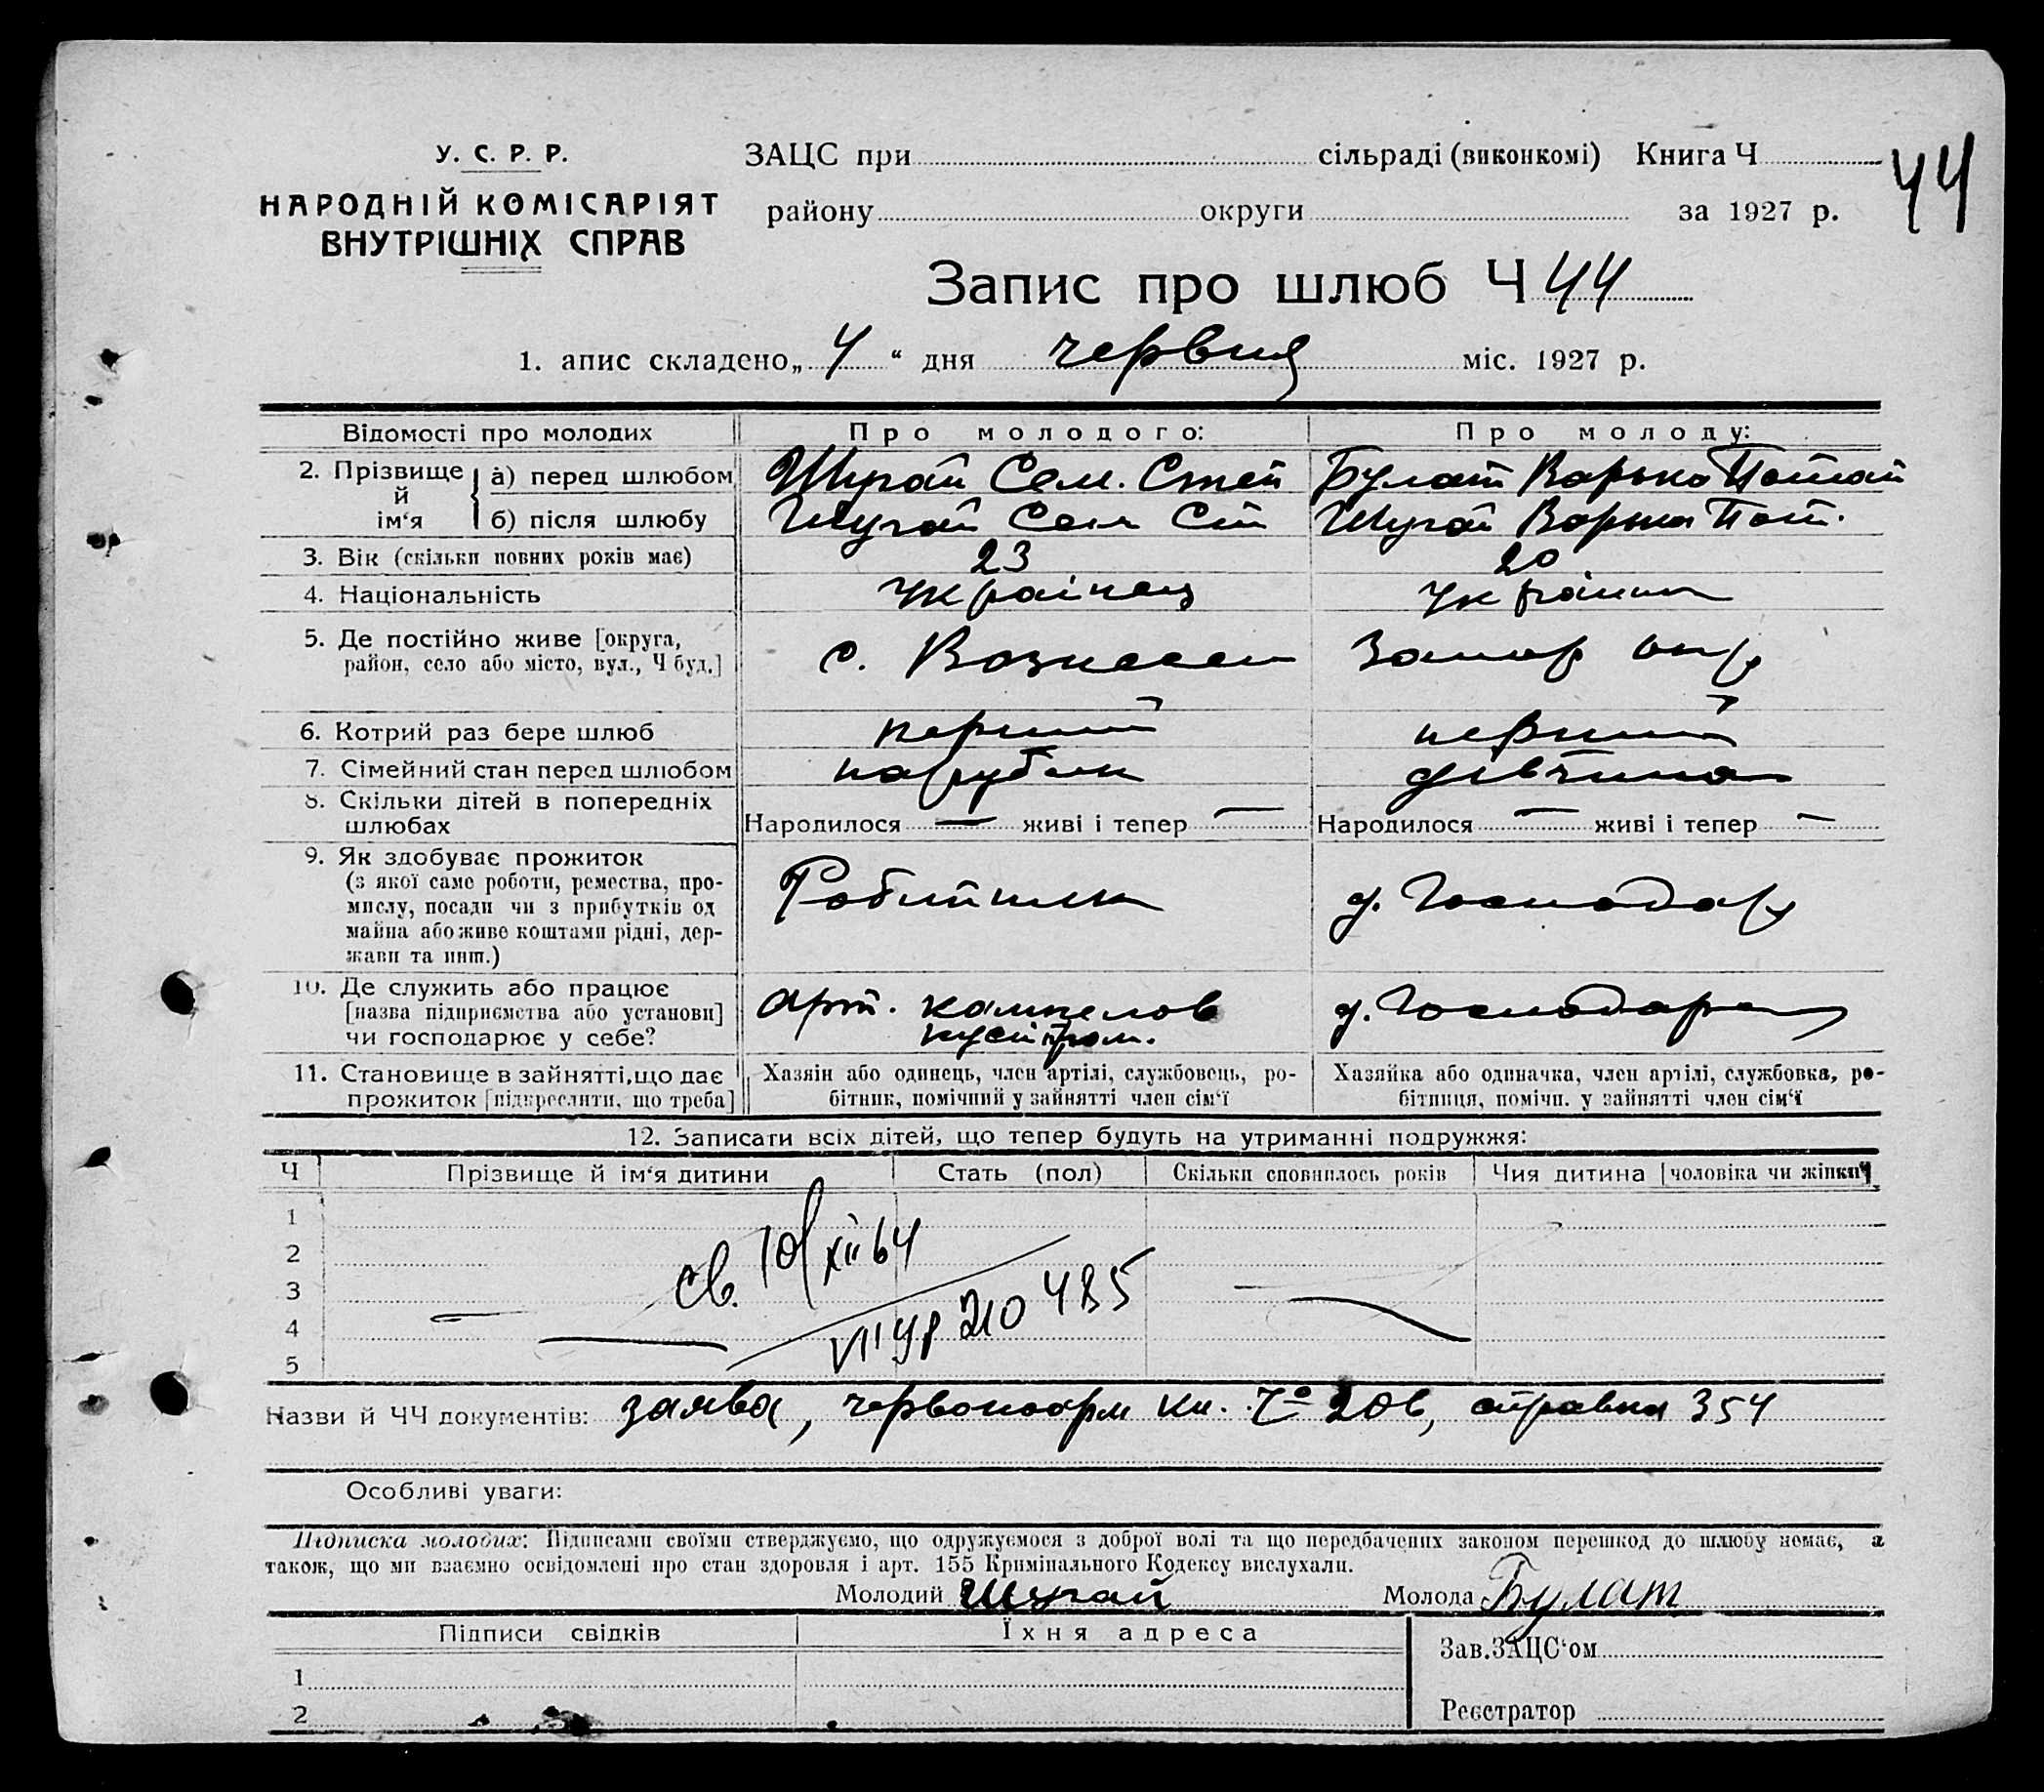 У. С. Р. Р.
НАРОДНІЙ КОМІСАРІЯТ
ВНУТРІШНІХ СПРАВ
ЗАЦС при сільраді (виконкомі) Книга Ч 44
району округи за 1927 р.
Запис про шлюб Ч 44
1. апис складено „4“ дня червня міс. 1927 р.
Відомості про молодих Про молодого: Про молоду:
2. Прізвище й ім‘я а) перед шлюбом Шугай Сем. Степ Булат Варька Потап
б) після шлюбу Шугай Сем Ст Шугай Варька Пот.
3. Вік (скільки повних років має) 23 20
4. Національність Українец Україн
5. Де постійно живе [округа, район, село або місто, вул., Ч буд.] с. Вознесен Запор окр
6. Котрий раз бере шлюб перший перший
7. Сімейний стан перед шлюбом парубок дівчина
8. Скільки дітей в попередніх шлюбах Народилося — живі і тепер — Народилося — живі і тепер —
9. Як здобуває прожиток Робітник д. Господар
(з якої саме роботи, ремества, про-
мислу, посади чи з прибутків од
майна або живе коштами рідні, дер-
жави та инш.)
10. Де служить або працює
[назва підприємства або установи]
чи господарює у себе?
арт. д. Господар
11. Становище в зайнятті, що дає
прожиток [підкреслити, що треба]
Хазяін або одинець, член артілі, службовець, ро-
бітник, помічний у зайнятті член сім‘ї
Хазяйка або одиначка, член артілі, службовка, ро-
бітниця, помічн. у зайнятті член сім‘ї
12. Записати всіх дітей, що тепер будуть на утриманні подружжя:
Ч Прізвище й ім‘я дитини Стать (пол) Скільки сповнилось років Чия дитина [чоловіка чи жінки]
1
2
3
4
5
св. 10/XII 64
VII УР 210485
Назви й ЧЧ документів: заява, червоноарм кн. 206, справка 354
Особливі уваги:
Підписка молодих: Підписами своїми стверджуємо, що одружуємося з доброї волі та що передбачених законом перешкод до шлюбу немає, а
також, що ми взаємно освідомлені про стан здоровля і арт. 155 Кримінального Кодексу вислухали.
Молодий Шугай Молода Булат
Підписи свідків Їхня адреса
Зав.ЗАЦС‘ом
1
2
Реєстратор